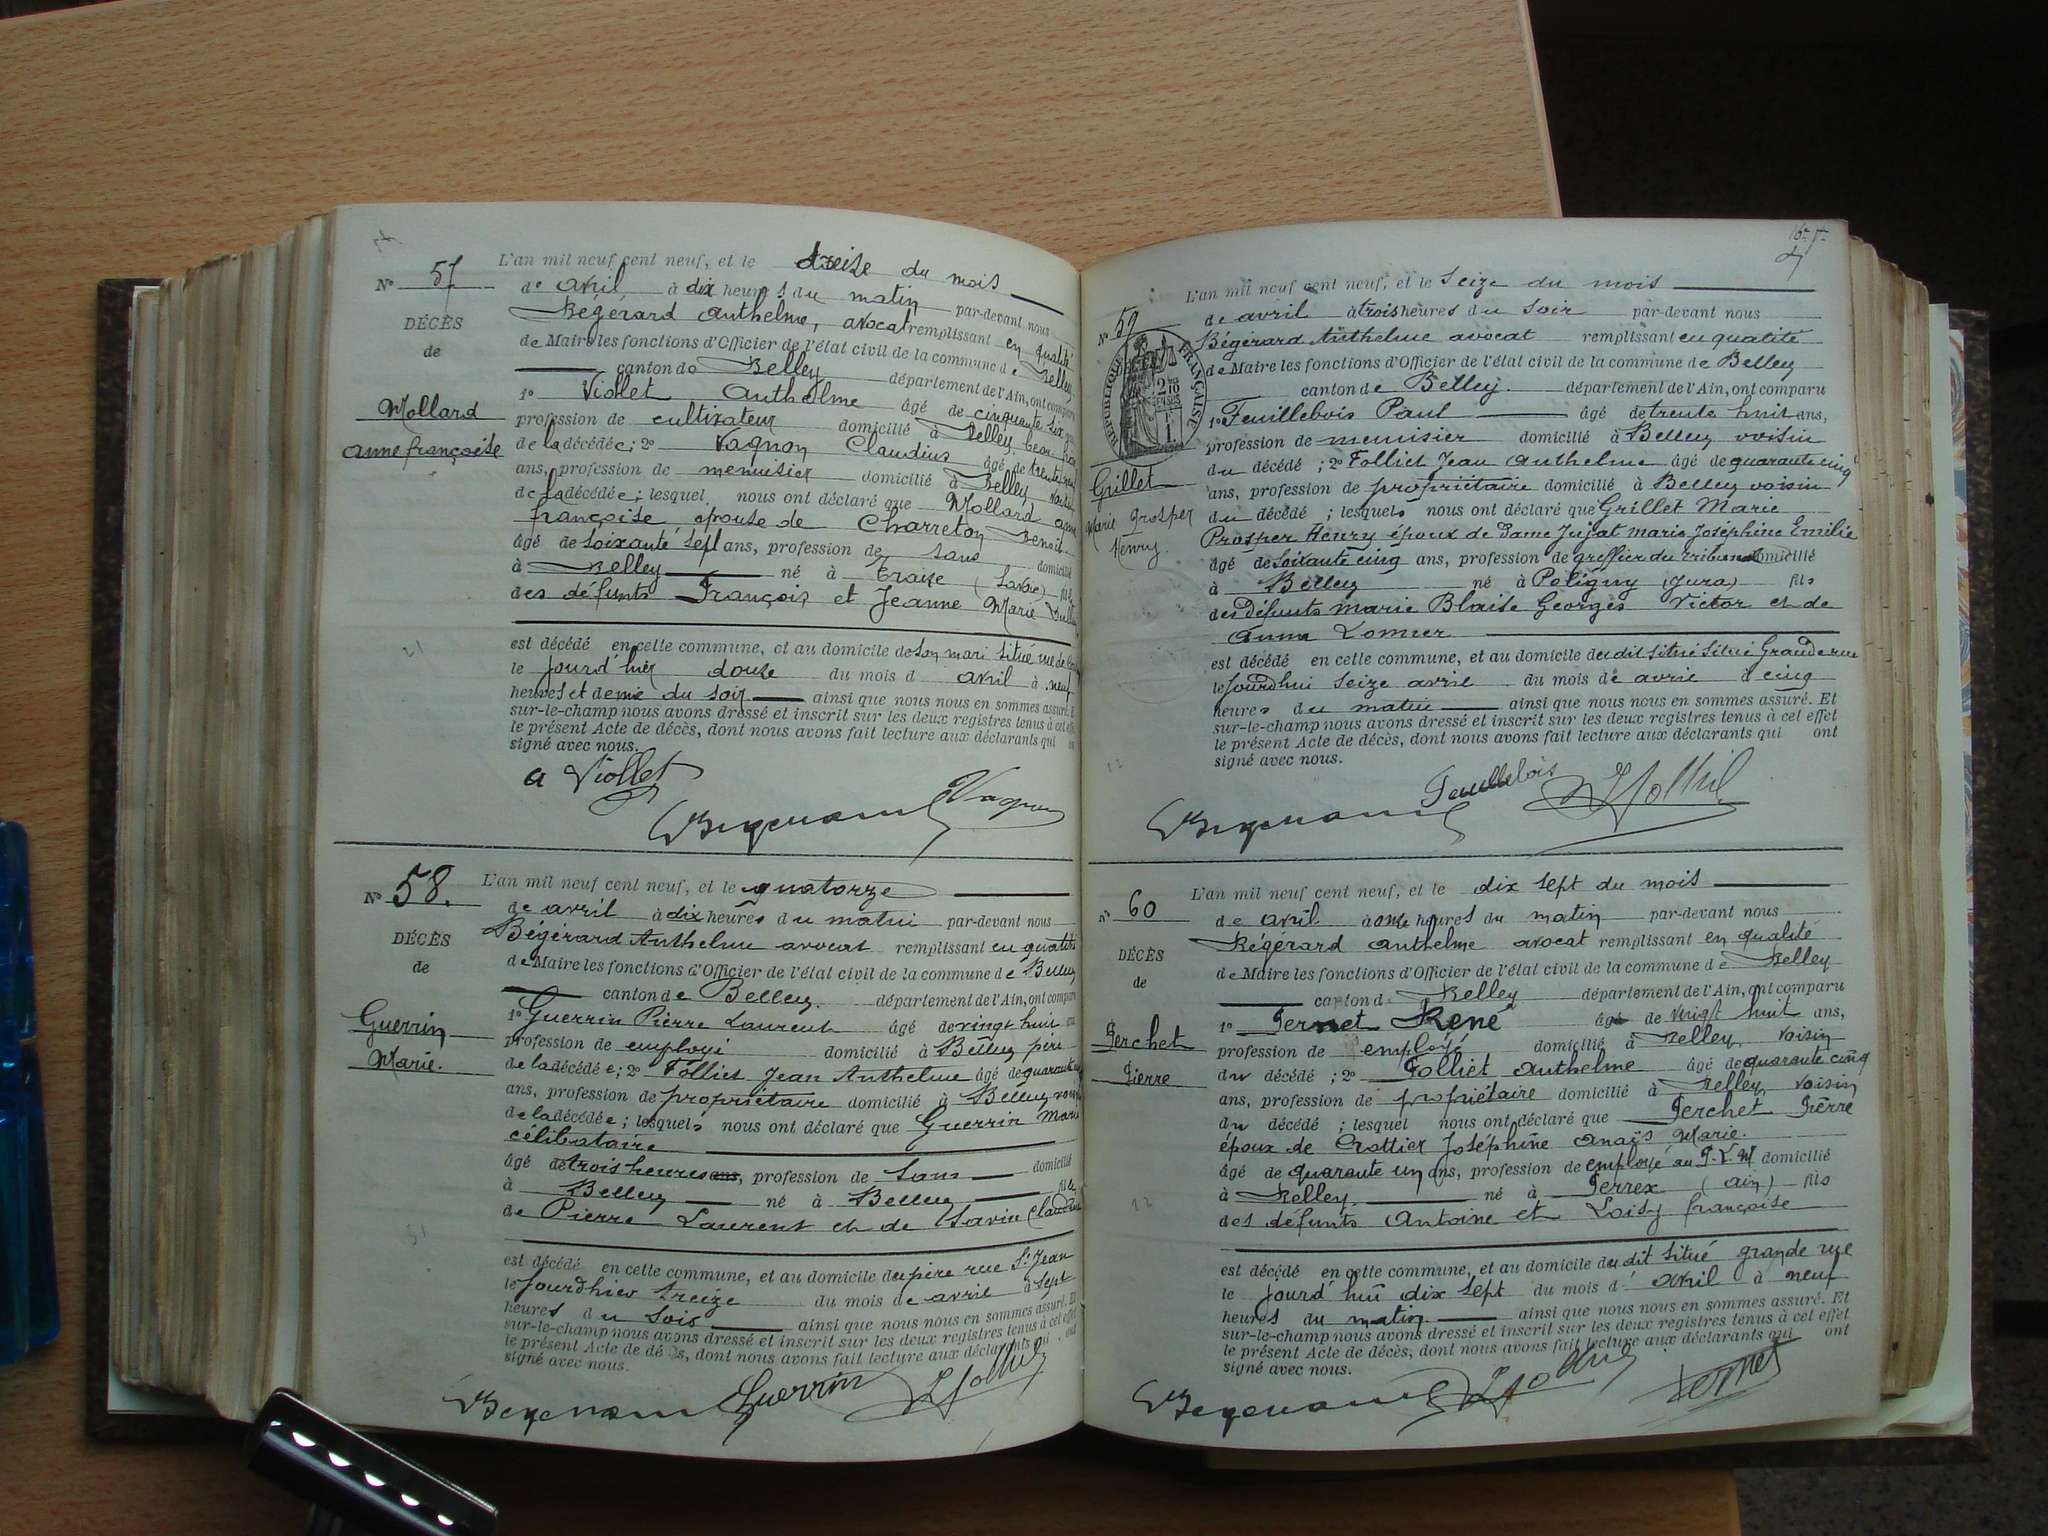 N° 57
DÉCÈS
de
Mollard
anne françoise
L'an mil neuf cent neuf, et le treize du mois
de avril à dix heures du matin par-devant nous
Bégérard Anthelme, avocat remplissant en qualité
de Maire les fonctions d'Officier de l'état civil de la commune de Belley
canton de Belley département de l'Ain, ont comparu
1° Viollet Anthelme âgé de cinquante six
profession de cultivateur domicilié à Belley, beau frère
de la décédée; 2° Vagnon Claudius âgé de trente
ans, profession de menuisier domicilié à Belley voisin
de la décédée; lesquel nous ont déclaré que Mollard anne
françoise épouse de Charreton Benoit
âgé de soixante sept ans, profession de sans domicilié
à Belley né à Traize (Savoie) fille
des défunts François et Jeanne Marie
est décédé en cette commune, et au domicile de son mari situé rue de
le jourd'hier douze du mois d avril à neuf
heures et demie du soir ainsi que nous nous en sommes assuré. Et
sur-le-champ nous avons dressé et inscrit sur les deux registres tenus à cet effet
le présent Acte de décès, dont nous avons fait lecture aux déclarants qui ont
signé avec nous.
a Viollet
Vagnon
N° 58.
DÉCÈS
de
Guerrin
Marie.
L'an mil neuf cent neuf, et le quatorze
de avril à dix heures du matin par-devant nous
Bégérard Anthelme avocat remplissant en qualité
de Maire les fonctions d'Officier de l'état civil de la commune de Belley
canton de Belley. département de l'Ain, ont comparu
1° Guerrin Pierre Laurent âgé de vingt huit ans
profession de employé domicilié à Belley père
de la décédée; 2° Folliet Jean Anthelme âgé de quarante cinq
ans, profession de propriétaire domicilié à Belley voisin
de la décédée; lesquels nous ont déclaré que Guerrin Marie
célibataire
âgé de trois heures ans, profession de Sans domicilié
à Belley né à Belley fille
de Pierre Laurent et de Savin Claudine
est décédé en cette commune, et au domicile du père rue St Jean
le jourdhier treize du mois de avril à sept
heures du soir ainsi que nous nous en sommes assuré. Et
sur-le-champ nous avons dressé et inscrit sur les deux registres tenus à cet effet
le présent Acte de décès, dont nous avons fait lecture aux déclarants qui ont
signé avec nous.
Guerrin
N° 59
RÉPUBLIQUE FRANÇAISE
Grillet
Marie Prosper
Henry.
L'an mil neuf cent neuf, et le seize du mois
de avril à trois heures du soir par-devant nous
Bégérard Anthelme avocat remplissant en qualité
de Maire les fonctions d'Officier de l'état civil de la commune de Belley
canton de Belley. département de l'Ain, ont comparu
1° Feuillebois Paul âgé de trente huit ans,
profession de menuisier domicilié à Belley voisin
du décédé; 2° Folliet Jean Anthelme âgé de quarante cinq
ans, profession de propriétaire domicilié à Belley voisin
du décédé; lesquels nous ont déclaré que Grillet Marie
Prosper Henry époux de Dame Jujat marie Joséphine Emilie
âgé de soixante cinq ans, profession de greffier du tribunal domicilié
à Belley né à Poligny (Jura) fils
des défunts marie Blaise Georges Victor et de
Anna Lomier
est décédé en cette commune, et au domicile du dit situé situé Grande rue
le jourdhui seize avril du mois de avril à cinq
heures du matin ainsi que nous nous en sommes assuré. Et
sur-le-champ nous avons dressé et inscrit sur les deux registres tenus à cet effet
le présent Acte de décès, dont nous avons fait lecture aux déclarants qui ont
signé avec nous.
Feuillebois
N° 60
DÉCÈS
de
Perchet
Pierre
L'an mil neuf cent neuf, et le dix sept du mois
de avril à onze heures du matin par-devant nous
Bégérard Anthelme avocat remplissant en qualité
de Maire les fonctions d'Officier de l'état civil de la commune de Belley
canton de Belley département de l'Ain, ont comparu
1° Pernet René âgé de vingt huit ans,
profession de employé domicilié à Belley, voisin
du décédé; 2° Folliet Anthelme âgé de quarante cinq
ans, profession de propriétaire domicilié à Belley voisin
du décédé; lesquel nous ont déclaré que Perchet Pierre
époux de Crottier Joséphine Anaïs Marie.
âgé de quarante un ans, profession de employé au P.L.M domicilié
à Belley né à Perrex (ain) fils
des défunts Antoine et Loisy françoise
est décédé en cette commune, et au domicile du dit situé grande rue
le jourd'hui dix sept du mois d' avril à neuf
heures du matin. ainsi que nous nous en sommes assuré. Et
sur-le-champ nous avons dressé et inscrit sur les deux registres tenus à cet effet
le présent Acte de décès, dont nous avons fait lecture aux déclarants qui ont
signé avec nous.
Pernet